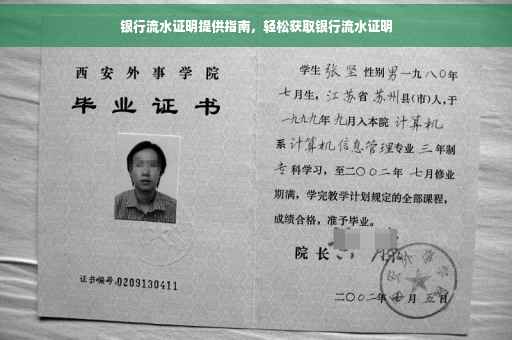 银行流水证明提供指南，轻松获取银行流水证明
西安外事学院
毕业证书
证书编号:0209130411
学生 张坚 性别男一九八〇年
七月生，江苏省苏州县(市)人，于
一九九九年九月入本院 计算机
系计算机信息管理专业 三年制
专科学习，至二〇〇二年七月修业
期满，学完教学计划规定的全部课程，
成绩合格，准予毕业。
院长
二〇〇二年 月五日